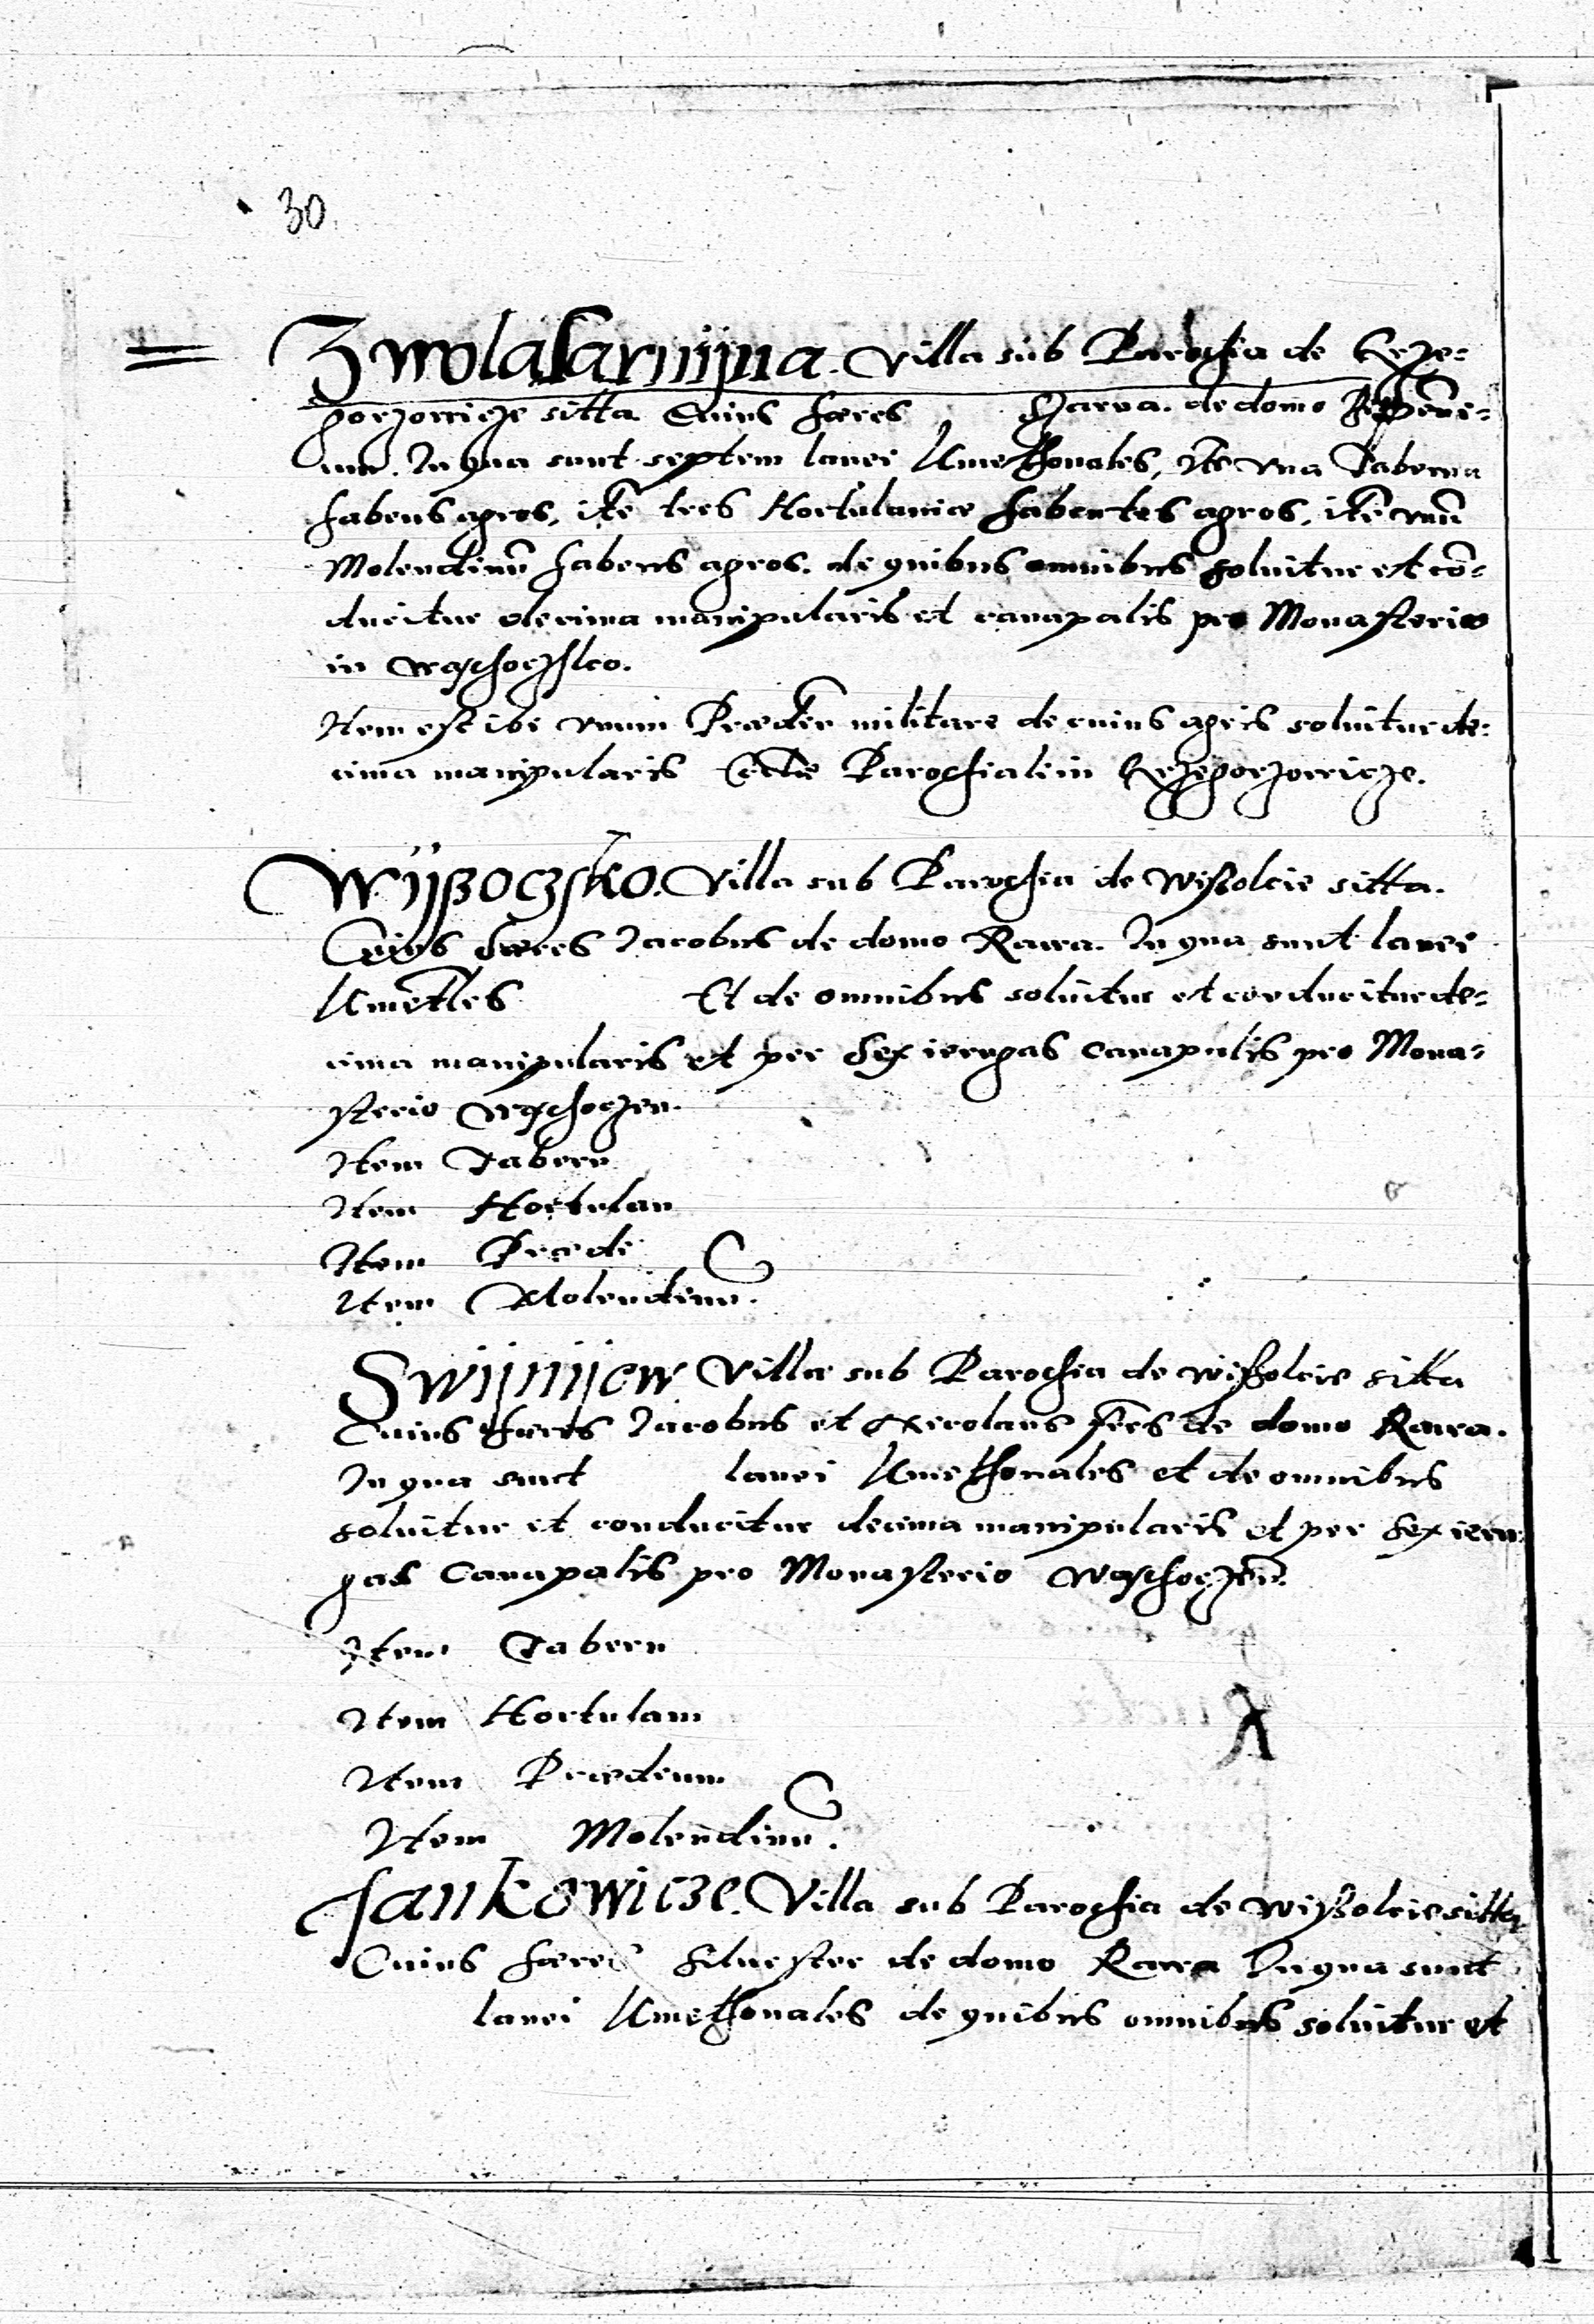 30
Zwolasarnijna. Villa sub Parochia de Grze-
gorzowicze sitta. Cuius hæres Sarna. de domo
In qua sunt septem lanei Kmethonales, itē vna Taberna
habens agros, itē tres Hortulaniæ habentes agros, itē vnū
Molendinū habens agros. de quibus omnibus soluitur et cō-
ducitur decima manipularis et canapalis pro Monasterio
in Wąchoczsko.
Item est ibi vnum Prædiū militare de cuius agris soluitur de-
cima manipularis Ecclē Parochiali in Grzegorzowicze.
Wijßoczsko. Villa sub Parochia de Wißokie sitta.
Cuius hæres Jacobus de domo Rawa. In qua sunt lanei
Kmetles Et de omnibus soluitur et conducitur de-
cima manipularis et per sex ierugas canapalis pro Mona-
sterio Wąchoczen.
Item Tabern
Item Hortulan
Item Prædi
Item Molendinū.
Swijnijow Villa sub Parochia de Wißokie sitta
Cuius hæres Jacobus et Nicolaus frēs de domo Rawa.
In qua sunt lanei Kmethonales et de omnibus
soluitur et conducitur decima manipularis et per sex ieru-
gas canapalis pro Monasterio Wąchoczēn.
Item Tabern
Item Hortulani
Item Prædium
Item Molendinū.
Jankowicze. Villa sub Parochia de Wißokie sitta
Cuius hæres Siluester de domo Rawa In qua sunt
lanei Kmethonales de quibus omnibus soluitur et